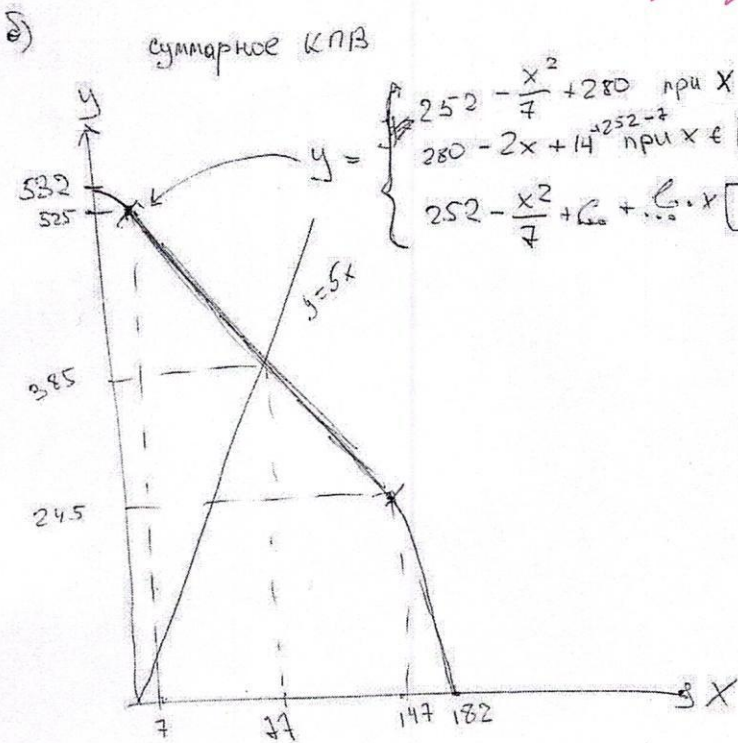 б) суммарное КПВ
y
y = { 252 - x²/7 + 280 при x
280 - 2x + 14 + 252 - 7 при x ∈ [
252 - x²/7 + + x [
532
525
y=5x
385
245
7 77 147 182 X